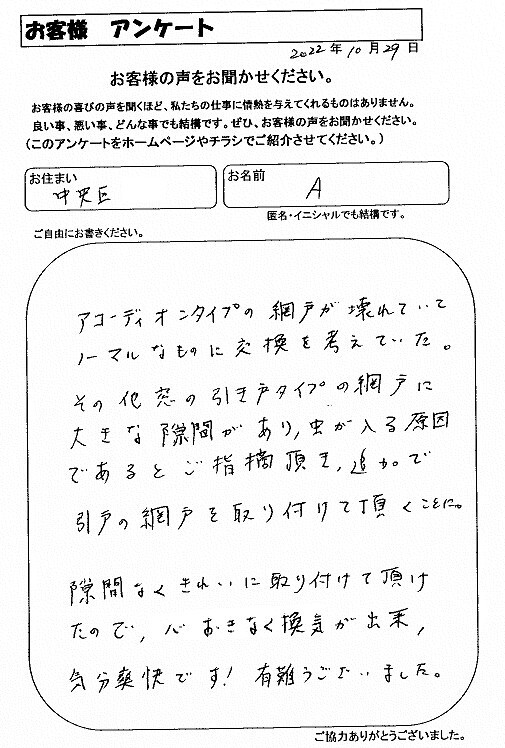 お客様 アンケート
2022年10月29日
お客様の声をお聞かせください。
お客様の喜びの声を聞くほど、私たちの仕事に情熱を与えてくれるものはありません。
良い事、悪い事、どんな事でも結構です。ぜひ、お客様の声をお聞かせください。
(このアンケートをホームページやチラシでご紹介させてください。)
お住まい
中央区
お名前
A
匿名・イニシャルでも結構です。
ご自由にお書きください。
アコーディオンタイプの網戸が壊れていて
ノーマルなものに交換を考えていた。
その他窓の引き戸タイプの網戸に
大きな隙間があり、虫が入る原因
であるとご指摘頂き、追加で
引戸の網戸を取り付けて頂くことに。
隙間なくきれいに取り付けて頂け
たので、心おきなく換気が出来、
気分爽快です!有難うございました。
ご協力ありがとうございました。